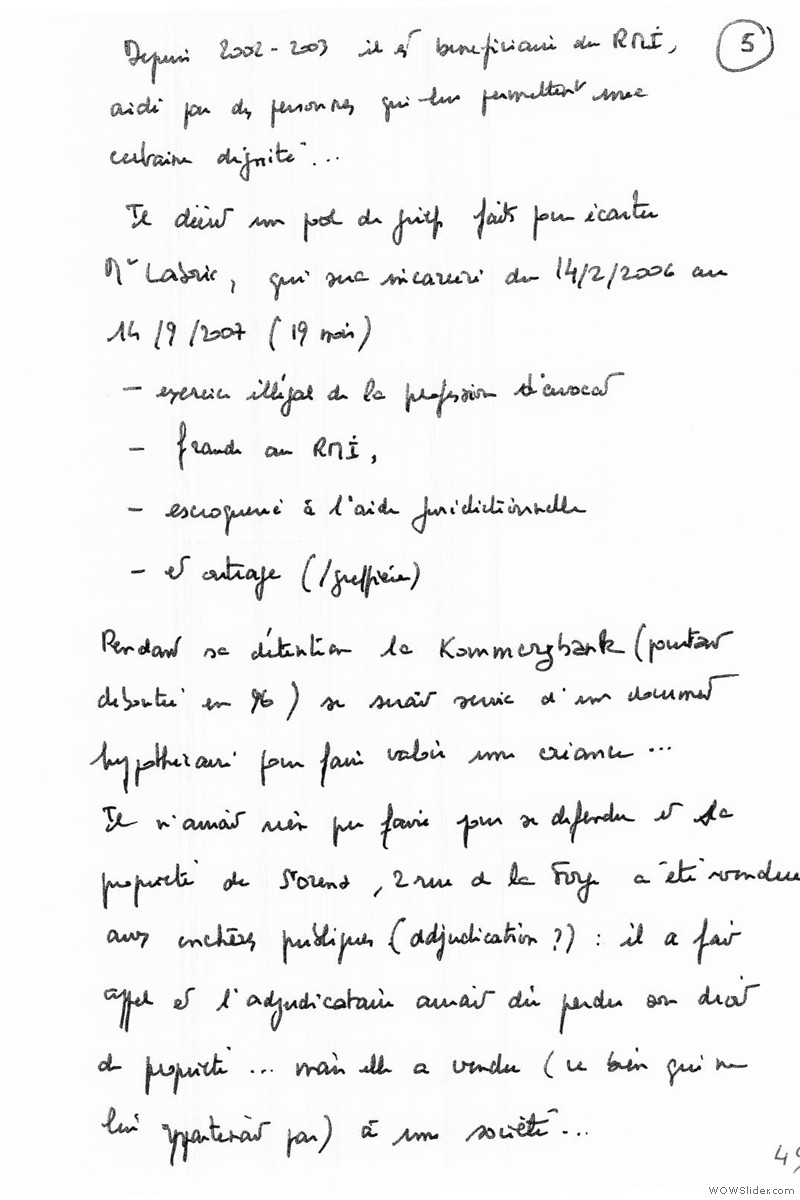 5
Depuis 2002-2003 il est beneficiaire du RMI,
aidé par des personnes qui lui permettent une
certaine dignité...
Il décrit un pot de faits pour écarter
Mr Laboric, qui sera incarceré du 14/2/2006 au
14/9/2007 (19 mois)
- exercice illégal de la profession d'avocat
- fraude au RMI,
- escroquerie à l'aide juridictionnelle
- et outrage (/greffière)
Pendant sa détention la Kommerzbank (pourtant
deboutée en 96) se serait servie d'un document
hypothécaire pour faire valoir une créance...
Il n'aurait rien pu faire pour se defendre et sa
propriété de St Orens, 2 rue de la Forge a été vendue
aux enchères publiques (adjudication ?) : il a fait
appel et l'adjudicataire aurait dû perdre son droit
de propriété... mais elle a vendu (ce bien qui ne
lui appartenait pas) à une société...
49
WOWSlider.com